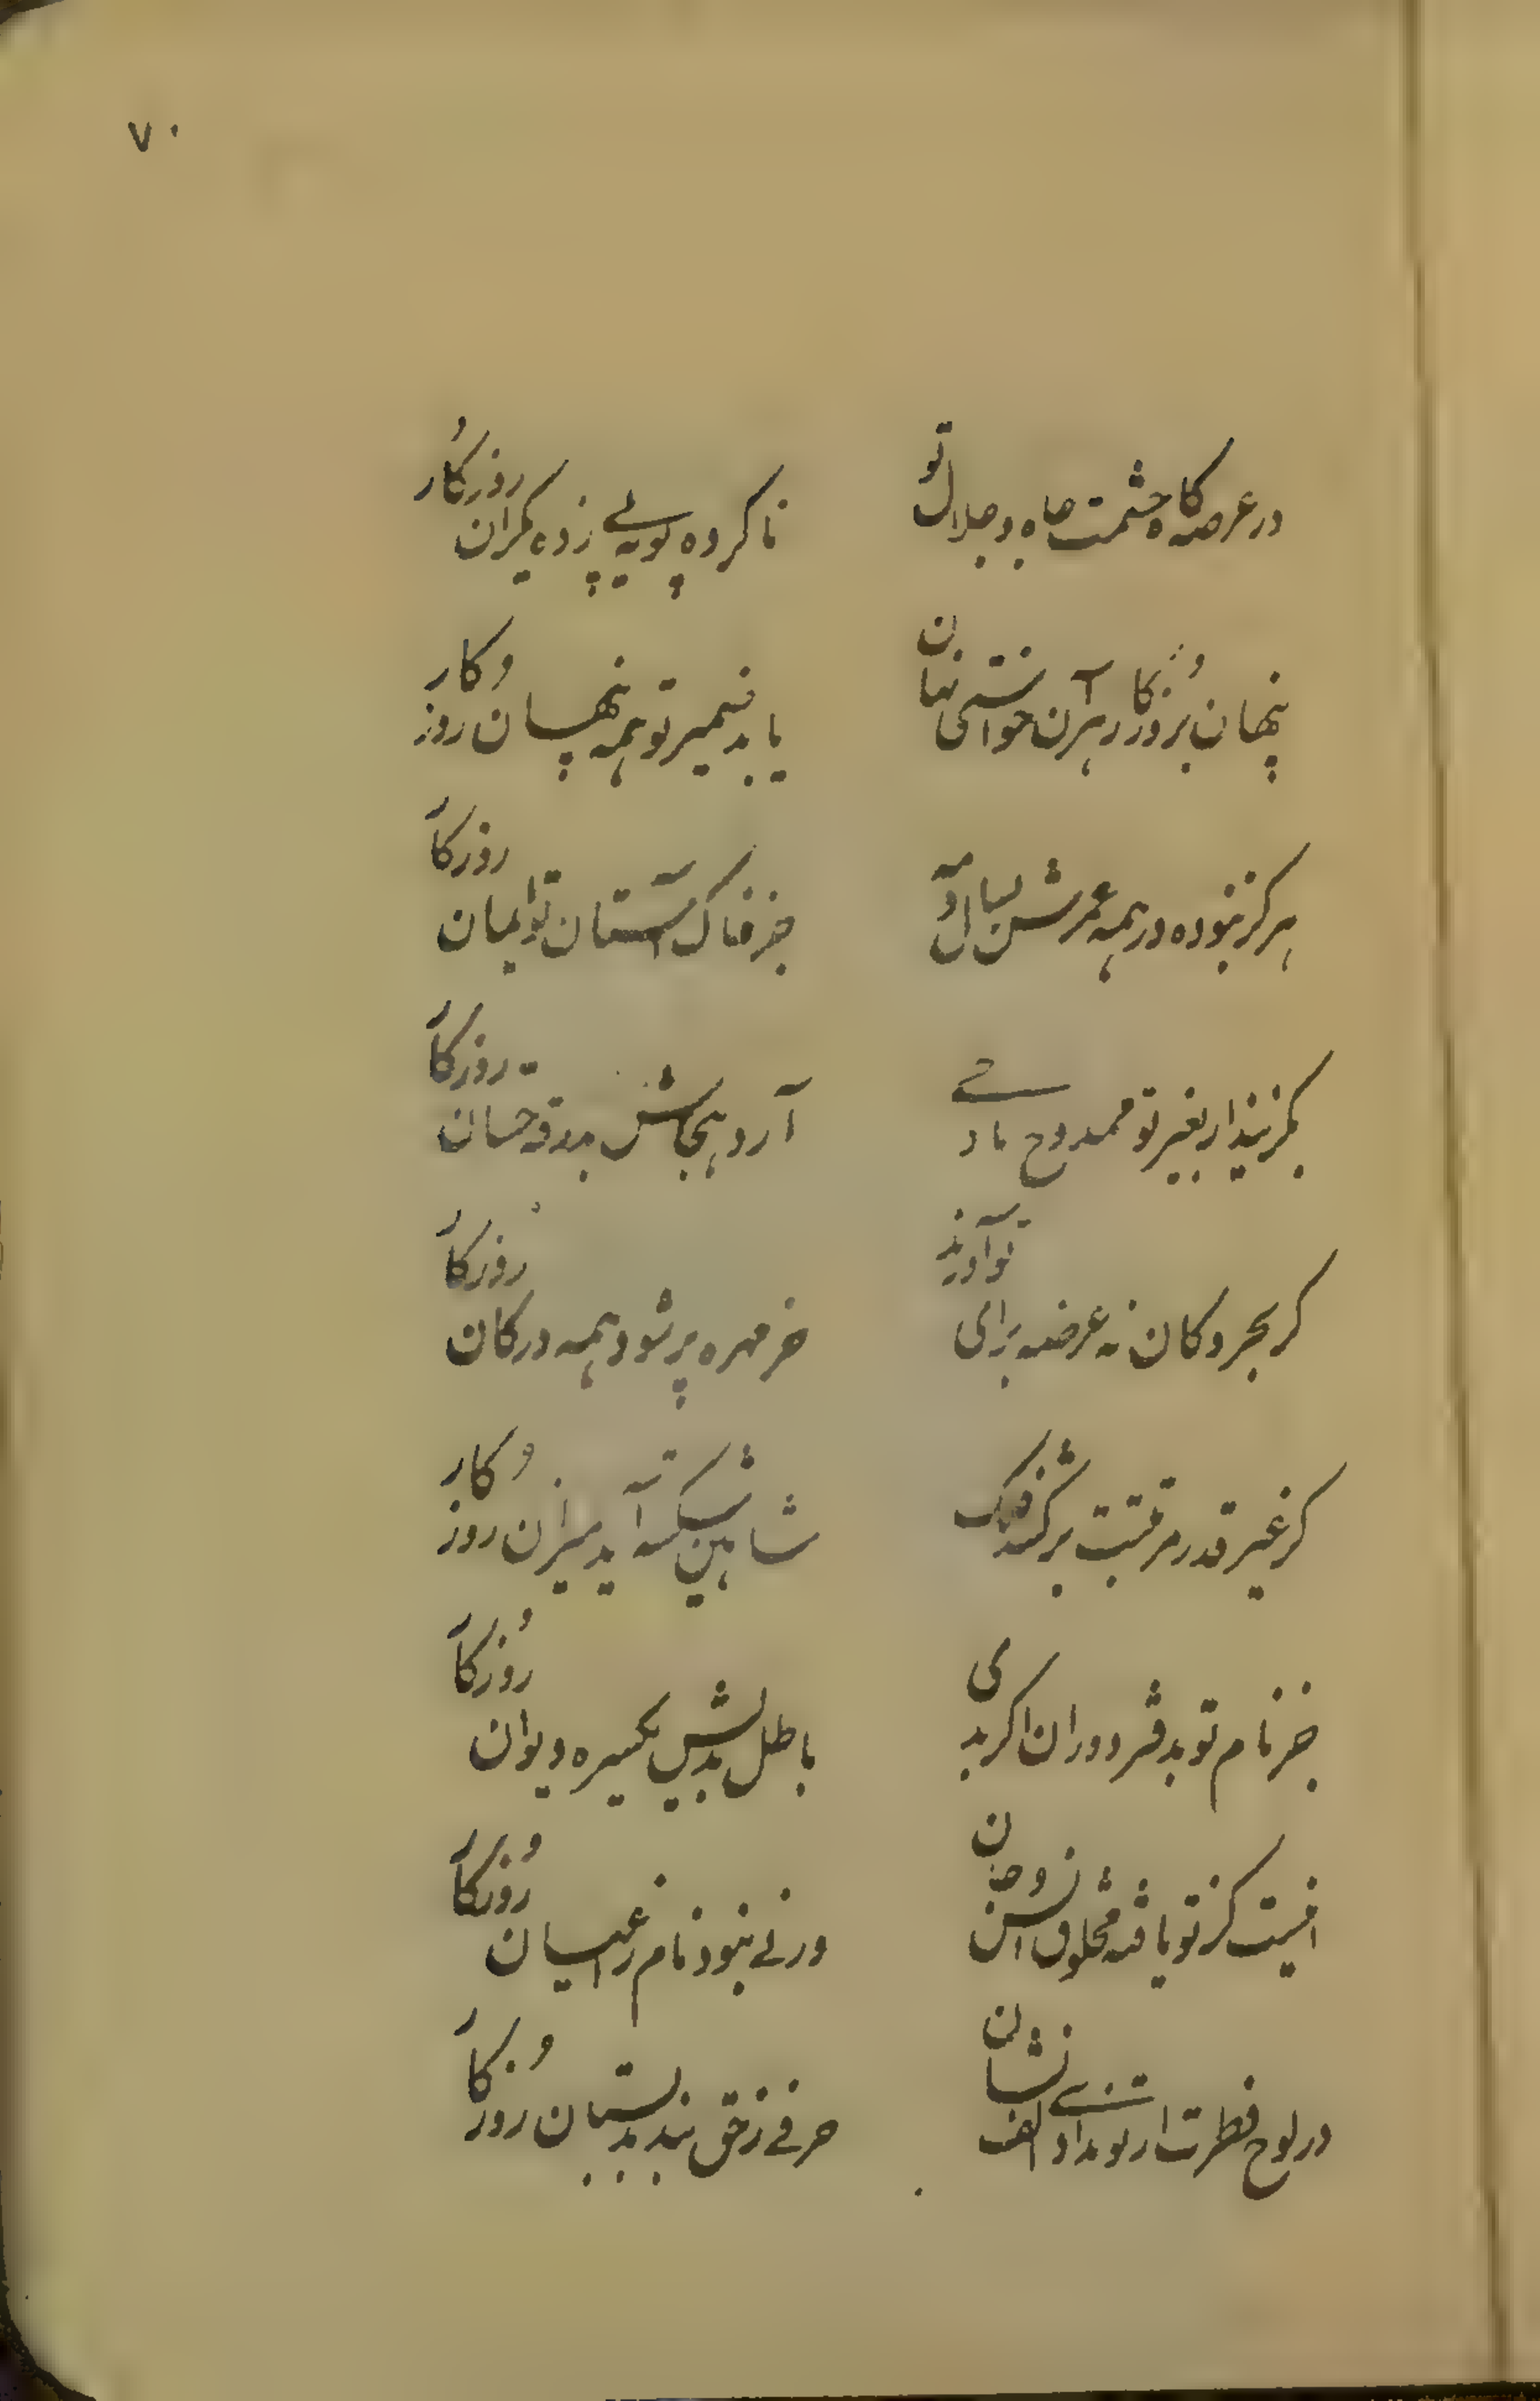 ۷۰
در عرصه کاه حشمت جاه و جلال تو
نا کرده پویه پی زده یکران روزکار
پنهان روزکار هر آن
یابد ضمیر تو همه پنهان روزکار
هرکز نبوده در همه عمرش
جز خاک آستان تو ایمان روزکار
بکزیند ار بغیر تو ممدوح مادحی
آرد بهجاش حسان روزکار
کر بحر و کان نه عرضه برای تو آورند
خرمهره پر شود همه در کان روزکار
کر غیر قدر مرتبت برکشد فلک
شاهین شکسته آید میزان روزکار
جز نام تو بدفتر دوران اکر بدی
باطل بدیش یکسره دیوان روزکار
کز تو یافته مخلوق انس و جان
ورنی نبود نام ز اعیان روزکار
در لوح فطرت ار تو ندادی الف نشان
حرفی ز حق نبد بدبستان روزکار